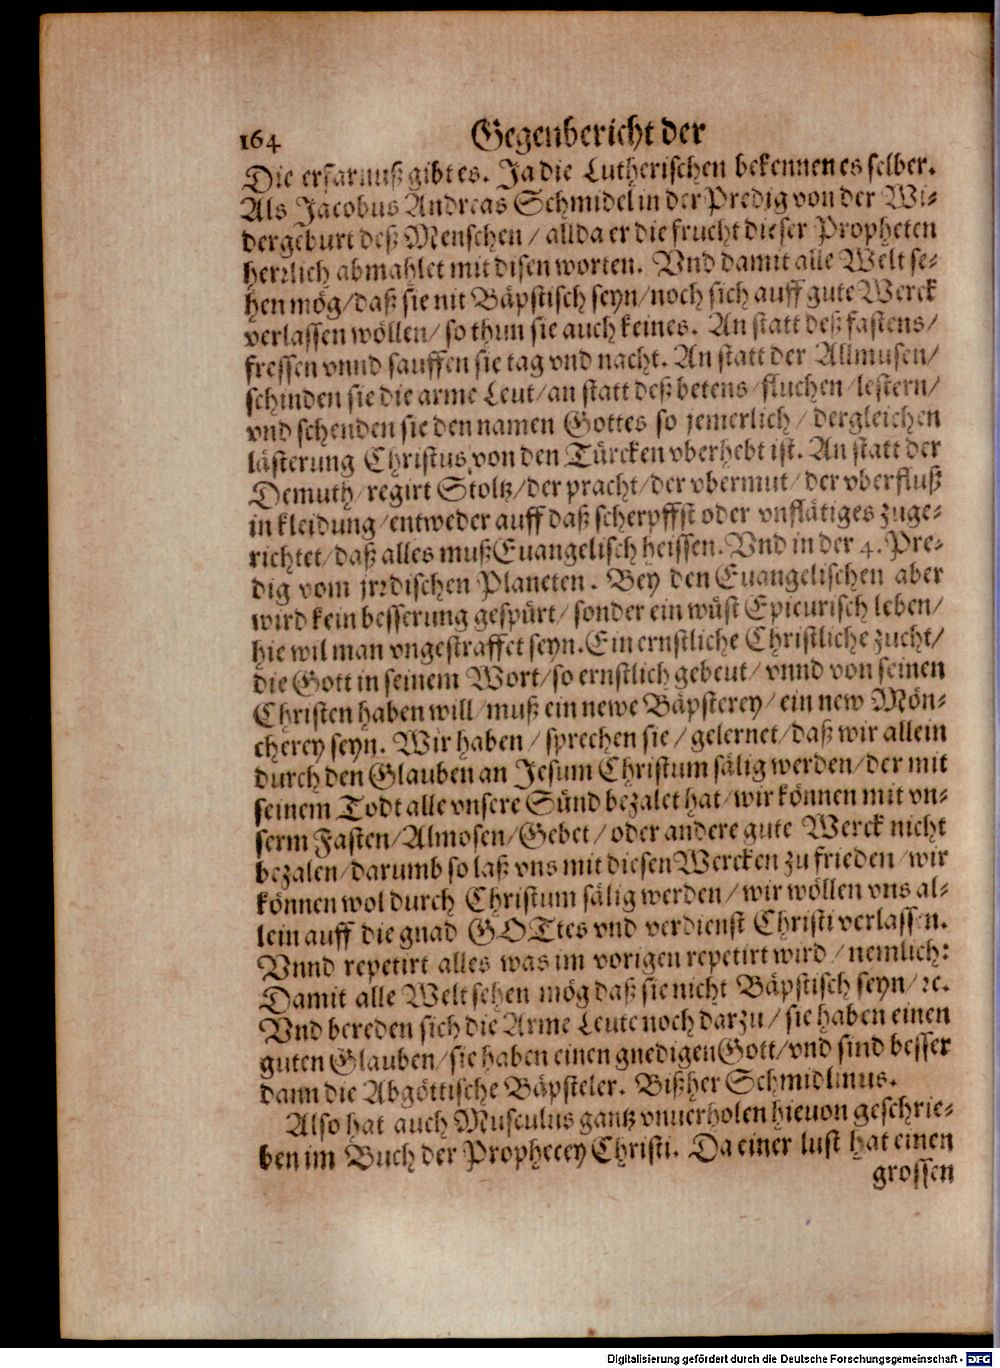 164 Gegenbericht der
Die erfarnuß gibt es. Ja die Lutherischen bekennen es selber.
Als Jacobus Andreas Schmidel in der Predig von der Wi-
dergeburt deß Menschen / allda er die frucht dieser Propheten
herrlich abmahlet mit disen worten. Vnd damit alle Welt se-
hen mög/daß sie nit Bäpstisch seyn/noch sich auff gute Werck
verlassen wöllen/ so thun sie auch keines. An statt deß fastens/
fressen vnnd sauffen sie tag vnd nacht. An statt der Allmusen/
schinden sie die arme Leut/an statt deß betens/fluchen/lestern/
vnd schenden sie den namen Gottes so jemerlich / dergleichen
lästerung Christus von den Türcken vberhebt ist. An statt der
Demuth/regirt Stoltz/der pracht/der vbermut/der vberfluß
in kleidung/entweder auff daß scherpffst oder vnflätiges zuge-
richtet/daß alles muß Euangelisch heissen. Vnd in der 4. Pre-
dig vom jrrdischen Planeten. Bey den Euangelischen aber
wird kein besserung gespürt/ sonder ein wüst Epicurisch leben/
hie wil man vngestraffet seyn. Ein ernstliche Christliche zucht/
die Gott in seinem Wort/so ernstlich gebeut/ vnnd von seinen
Christen haben will/muß ein newe Bäpsterey/ein new Mön-
cherey seyn. Wir haben / sprechen sie / gelernet/daß wir allein
durch den Glauben an Jesum Christum sälig werden/der mit
seinem Todt alle vnsere Sünd bezalet hat/wir können mit vn-
serm Fasten/Almosen/Gebet / oder andere gute Werck nicht
bezalen/darumb so laß vns mit diesen Wercken zu frieden/wir
können wol durch Christum sälig werden/wir wöllen vns al-
lein auff die gnad GOTtes vnd verdienst Christi verlassen.
Vnnd repetirt alles was im vorigen repetirt wird / nemlich:
Damit alle Welt sehen mög daß sie nicht Bäpstisch seyn/ ꝛc.
Vnd bereden sich die Arme Leute noch darzu / sie haben einen
guten Glauben/sie haben einen gnedigen Gott/vnd sind besser
dann die Abgöttische Bäpsteler. Bißher Schmidlinus.
Also hat auch Musculus gantz vnuerholen hieuon geschrie-
ben im Buch der Prophecey Christi. Da einer lust hat einen
grossen
Digitalisierung gefördert durch die Deutsche Forschungsgemeinschaft - DFG